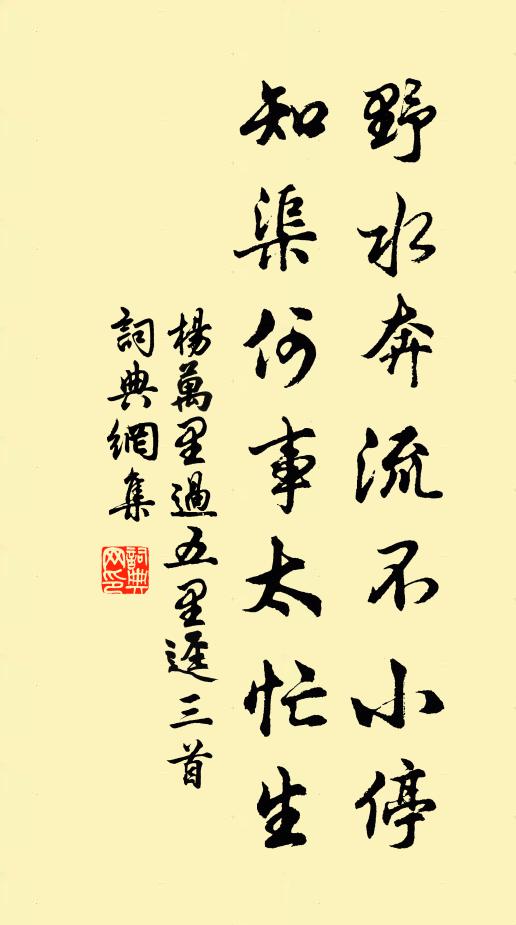 野水奔流不小停
知渠何事太忙生
楊萬里過五里逕三首
詞典網集
詞典网印